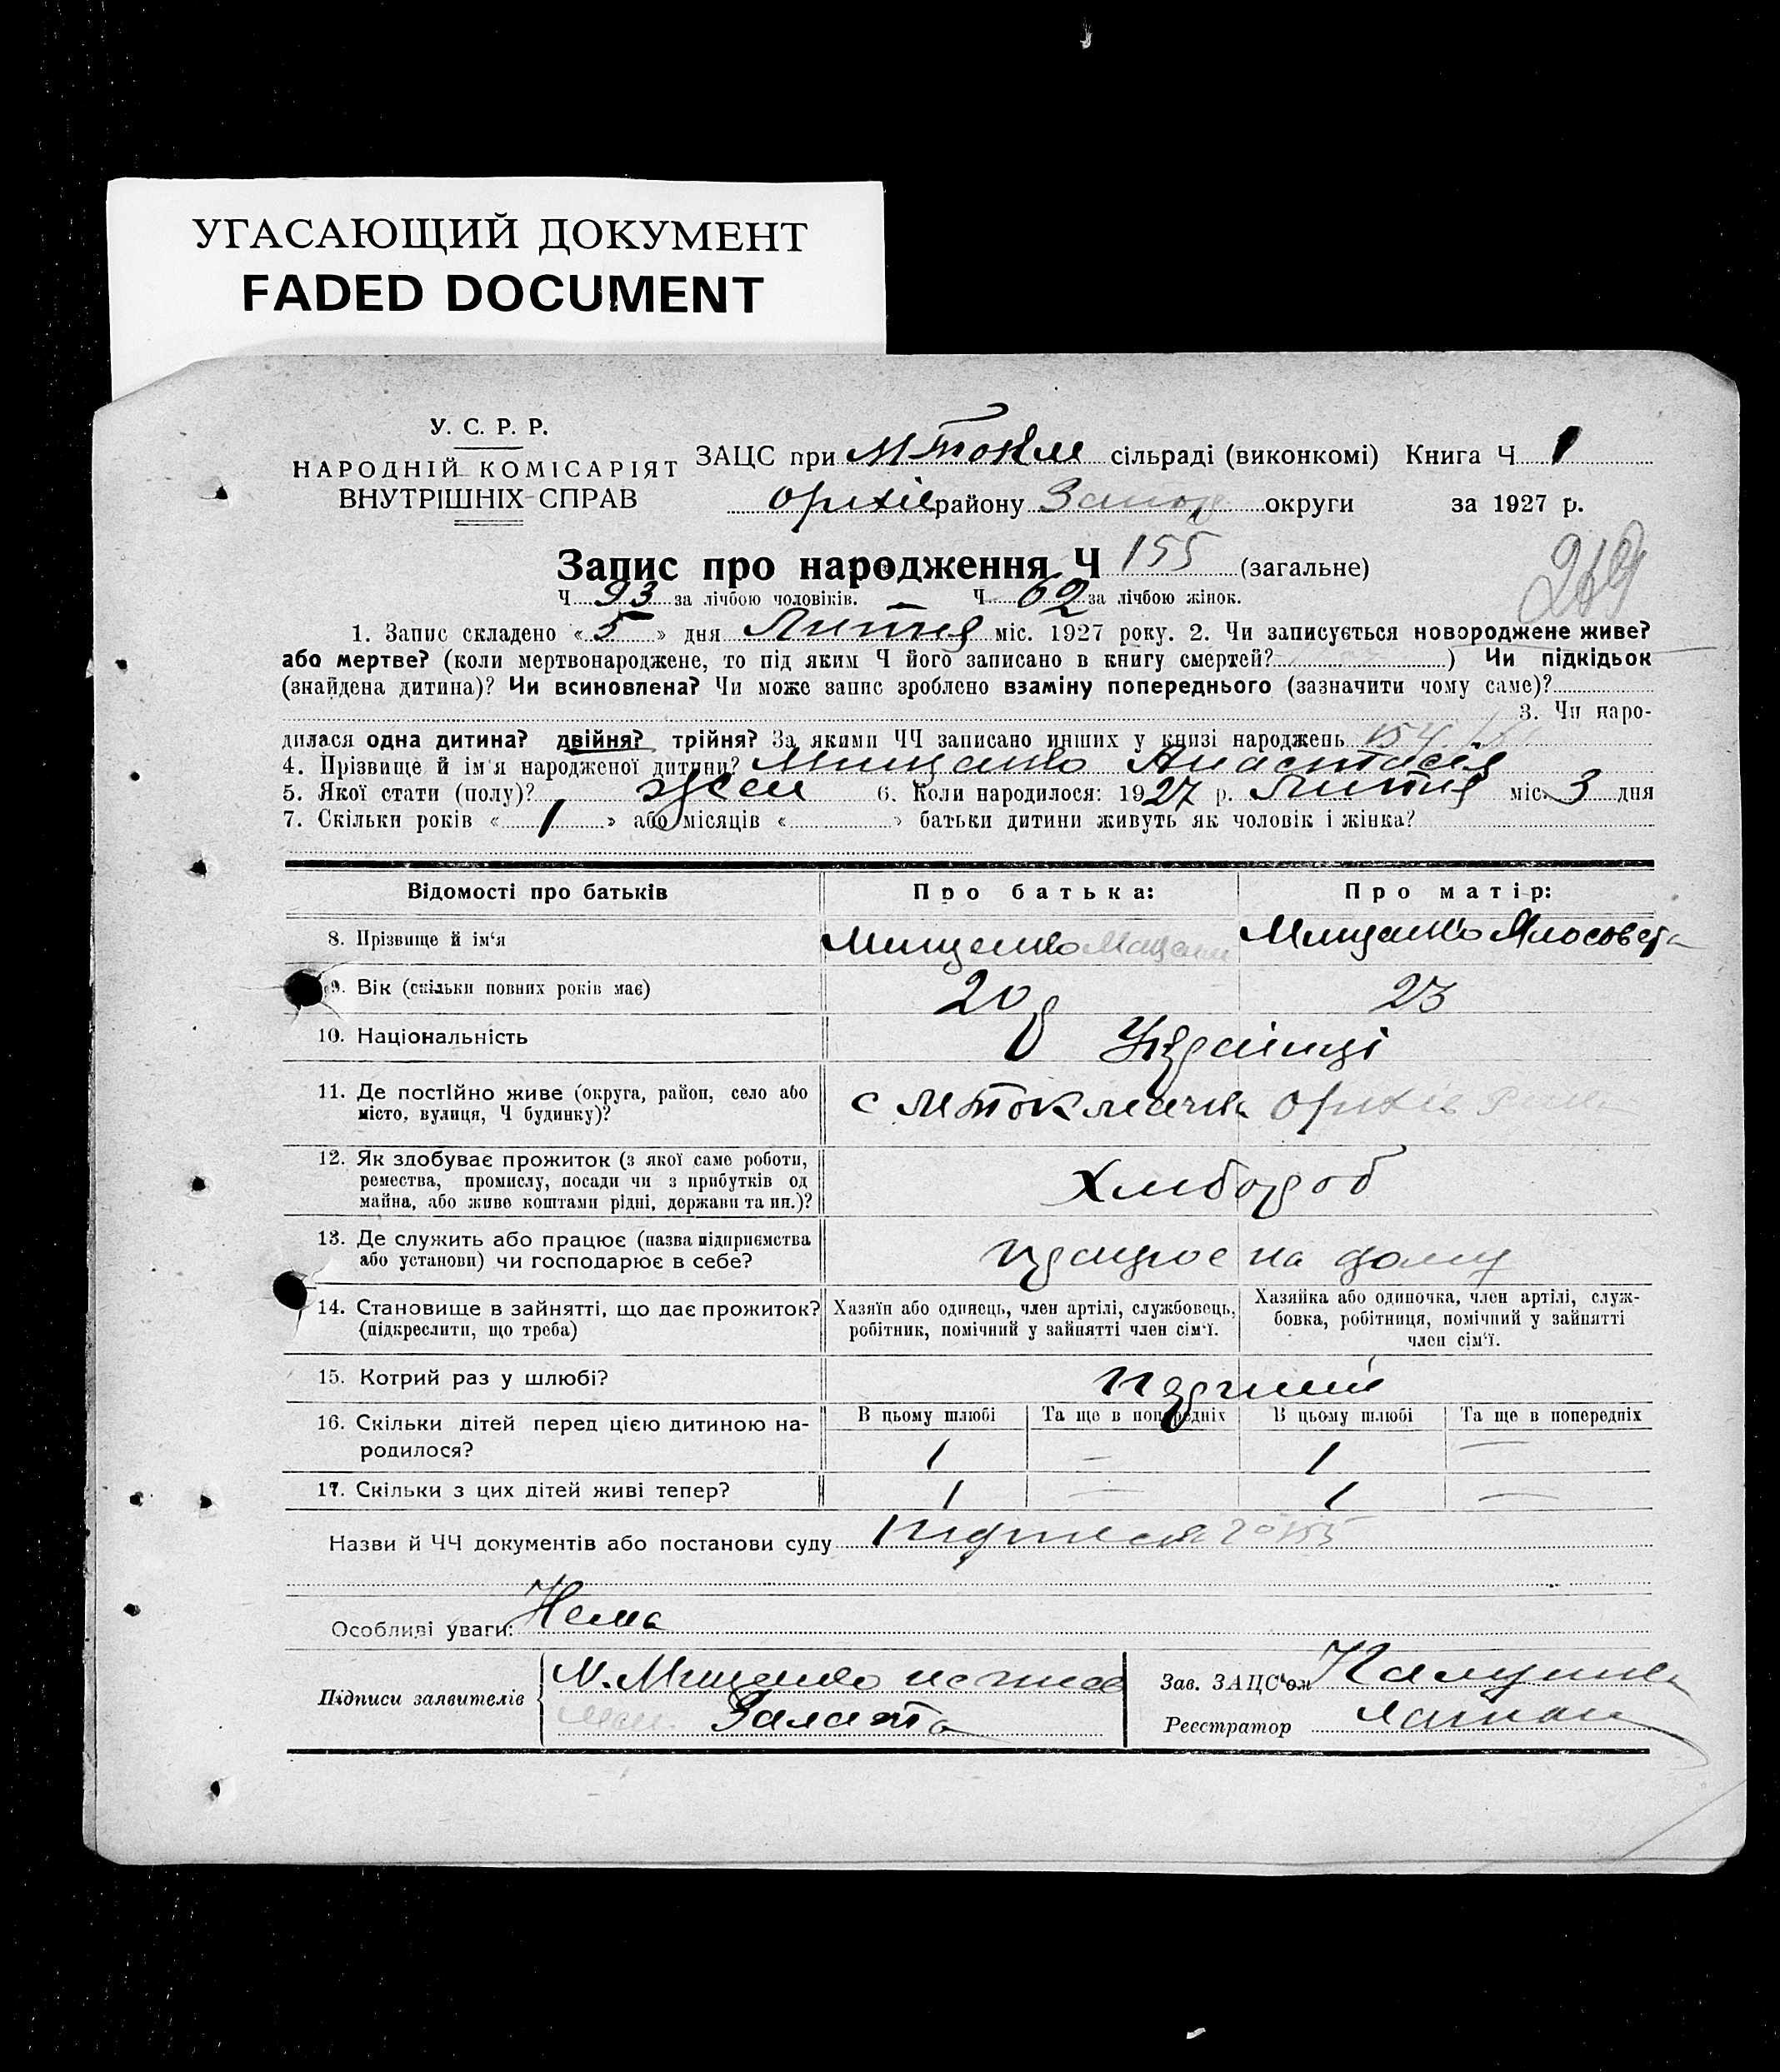 УГАСАЮЩИЙ ДОКУМЕНТ
FADED DOCUMENT
У. С. Р. Р.
НАРОДНІЙ КОМІСАРІЯТ
ВНУТРІШНІХ СПРАВ
ЗАЦС при М Токм сільраді (виконкомі) Книга Ч 1
Оріхів району Запор округи за 1927 р.
Запис про народження Ч 155 (загальне)
Ч 93 за лічбою чоловіків. Ч 62 за лічбою жінок.
1. Запис складено « 5 » дня Липня міс. 1927 року. 2. Чи записується новороджене живе?
або мертве? (коли мертвонароджене, то під яким Ч його записано в книгу смертей? ) Чи підкідьок
(знайдена дитина)? Чи всиновлена? Чи може запис зроблено взаміну попереднього (зазначити чому саме)?
3. Чи наро-
дилася одна дитина? двійня? трійня? За якими ЧЧ записано инших у книзі народжень 154
4. Прізвище й ім'я народженої дитини? Мищенко Анастасія
5. Якої стати (полу)? жен 6. Коли народилося: 1927 р. Липня міс. 3 дня
7. Скільки років « 1 » або місяців « » батьки дитини живуть як чоловік і жінка?
Відомості про батьків Про батька: Про матір:
8. Прізвище й ім'я Мищенко Мищенко
9. Вік (скільки повних років має) 20 23
10. Національність Українці
11. Де постійно живе (округа, район, село або
місто, вулиця, Ч будинку)?
с М Токмачка Оріхів
12. Як здобуває прожиток (з якої саме роботи,
ремества, промислу, посади чи з прибутків од
майна, або живе коштами рідні, держави та ин.)?
Хлибороб
13. Де служить або працює (назва підприємства
або установи) чи господарює в себе?
працює на дому
14. Становище в зайнятті, що дає прожиток?
(підкреслити, що треба)
Хазяїн або одинець, член артілі, службовець,
робітник, помічний у зайнятті член сім'ї.
Хазяйка або одиночка, член артілі, служ-
бовка, робітниця, помічний у зайнятті
член сім'ї.
15. Котрий раз у шлюбі? перший
16. Скільки дітей перед цією дитиною на-
родилося?
В цьому шлюбі Та ще в попередніх В цьому шлюбі Та ще в попередніх
1 — 1 —
17. Скільки з цих дітей живі тепер? 1 — 1 —
Назви й ЧЧ документів або постанови суду
Особливі уваги: Нема
Підписи заявителів М. Мищенко
Зав. ЗАЦС'ом
Реєстратор